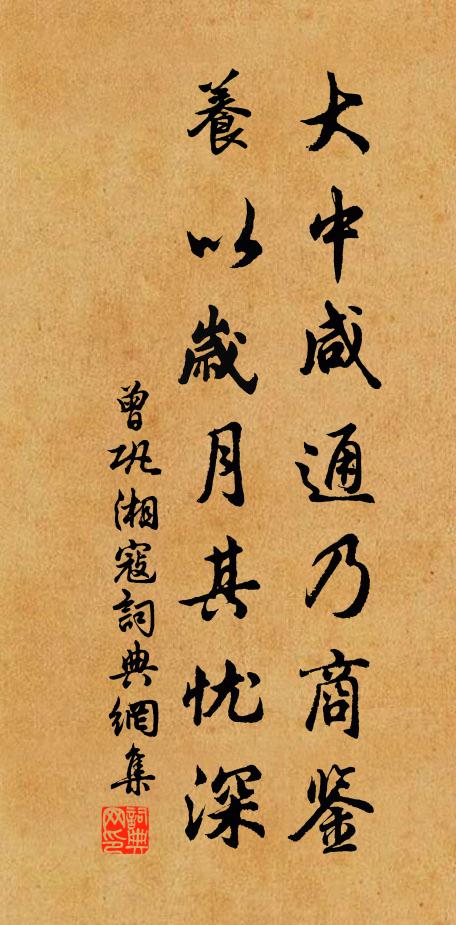 大中咸通乃商鉴
養以歲月其忧深
曾巩湘寇詞典網集
詞典网印